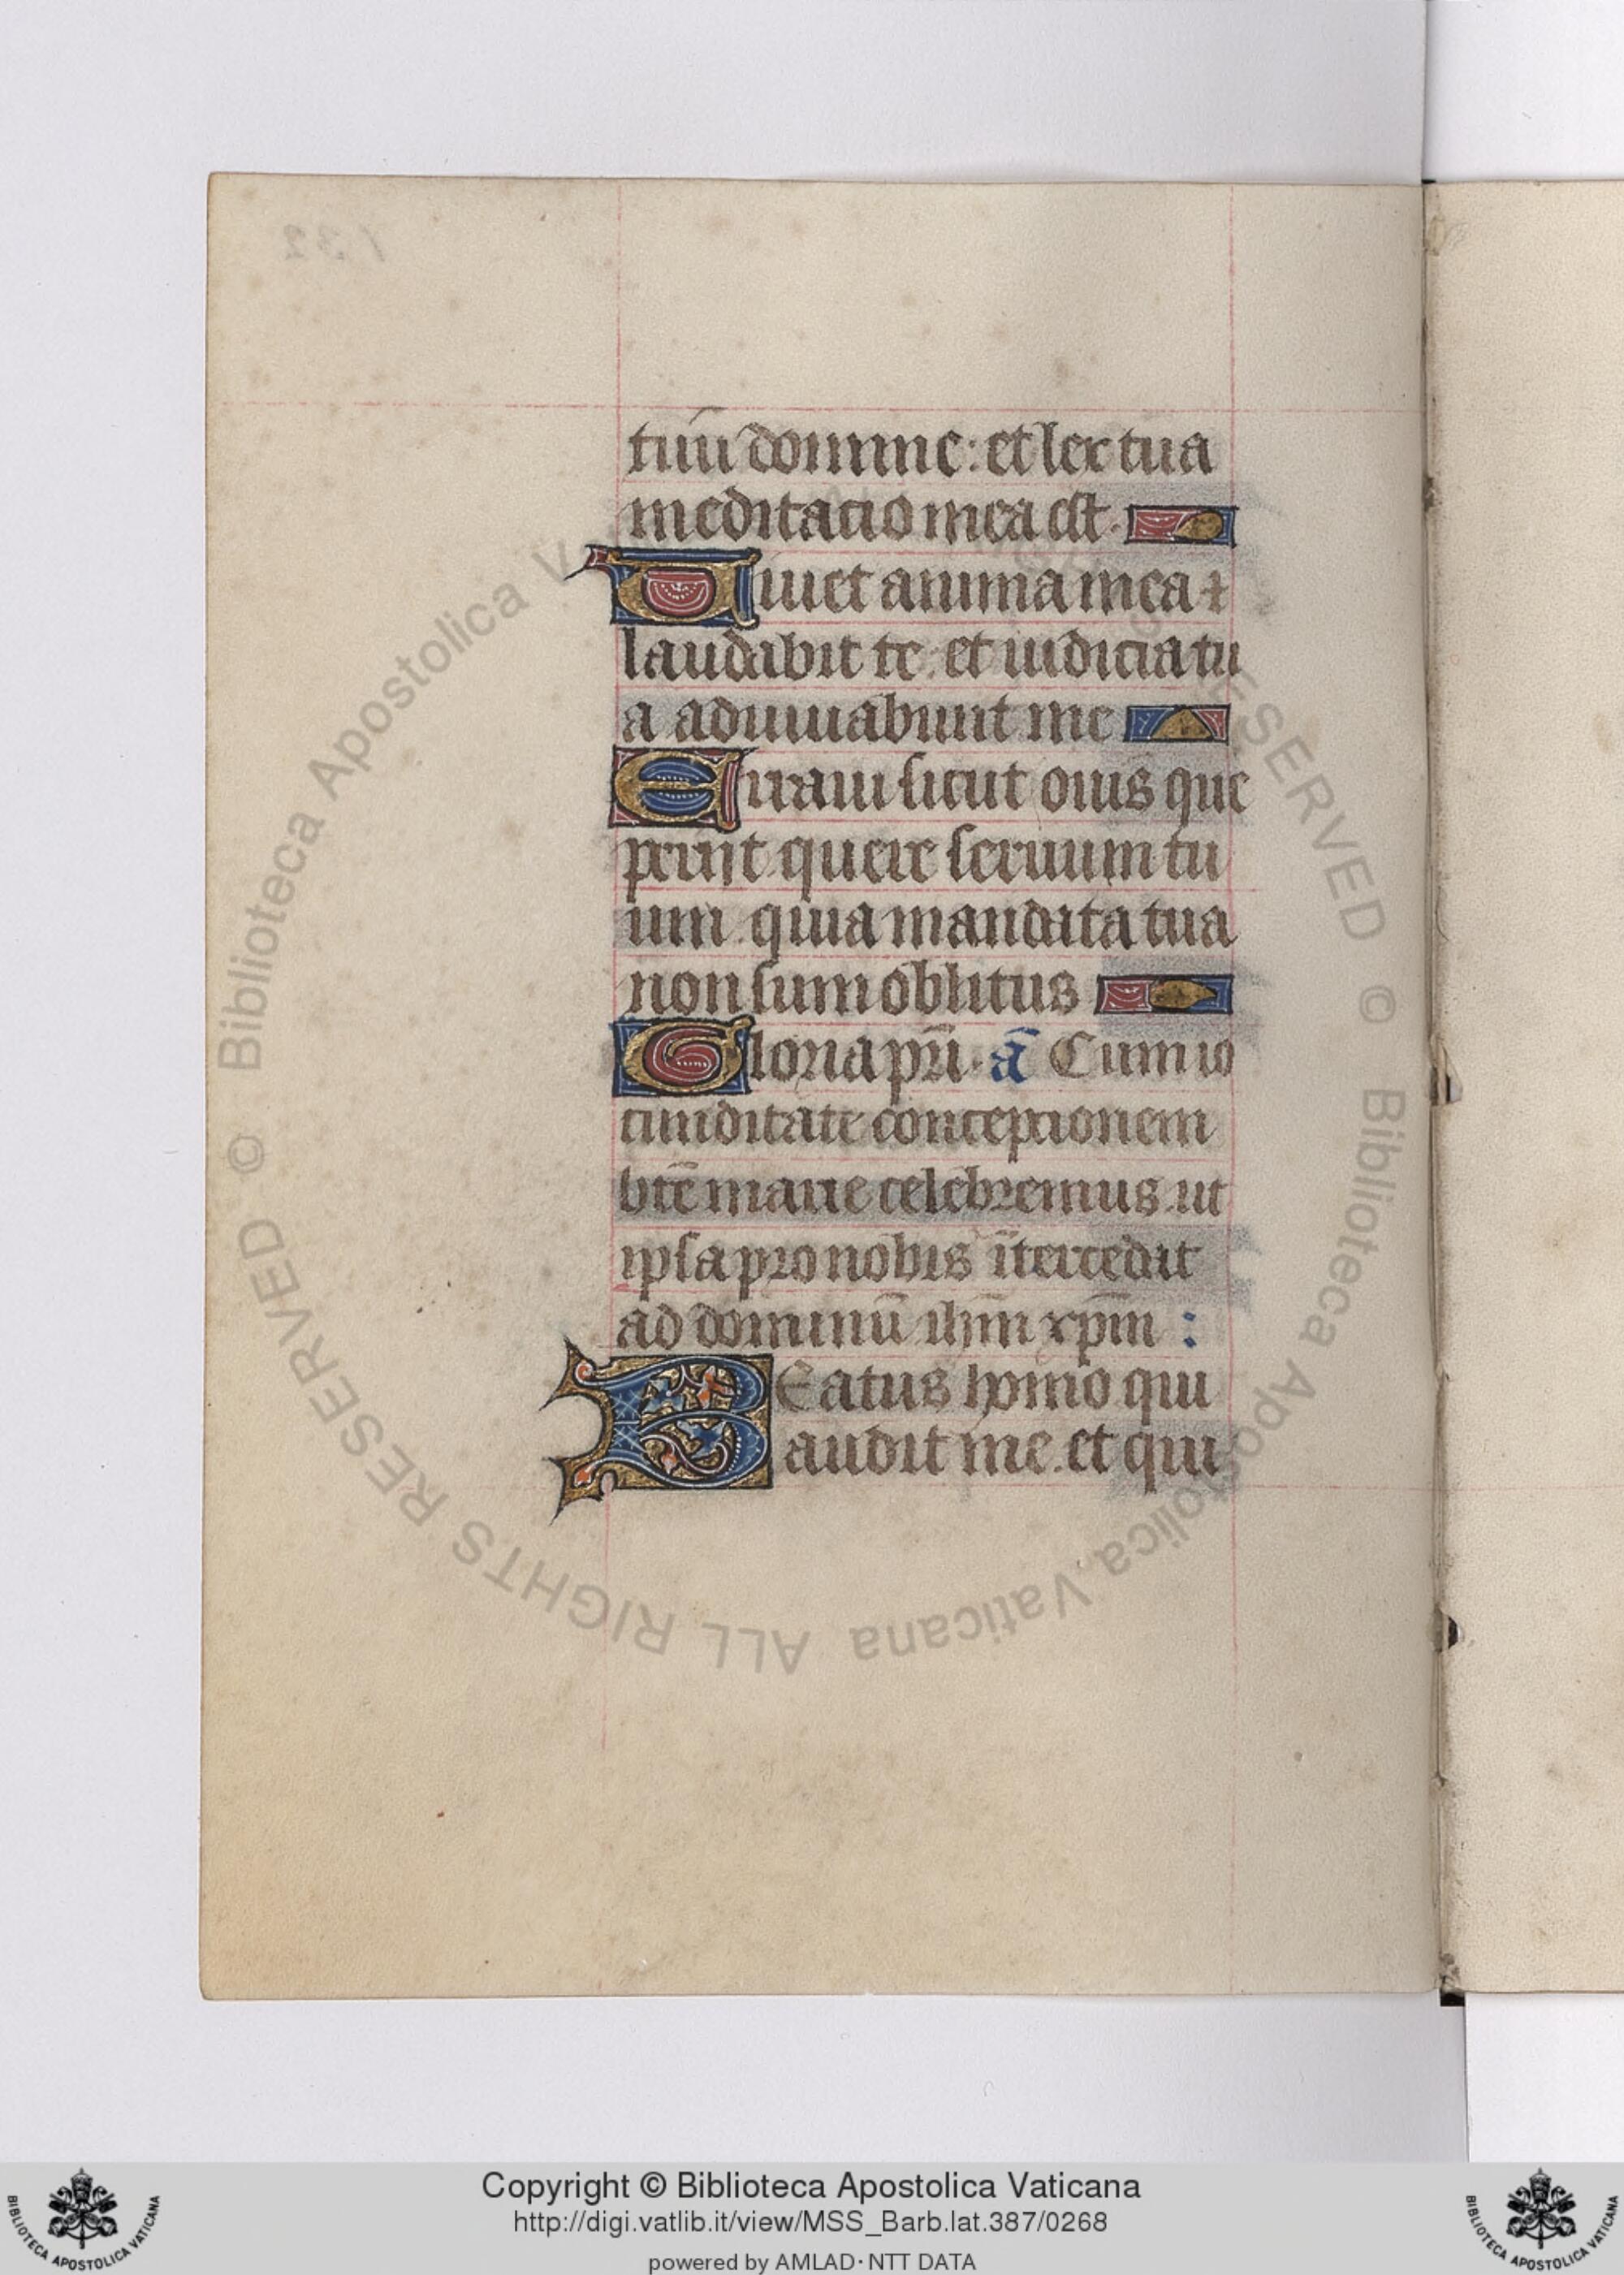 tuū domine: et lex tua
meditacio mea est.
Uiuet anima mea ⁊
laudabit te: et iudicia tu
a adiuuabunt me
Erraui sicut ouis que
periit quere seruum tu
um. quia mandata tua
non sum oblitus
Gloria pr̄i. ā Cum io
cunditate conceptionem
btē marie celebremus. ut
ipsa pro nobis ītercedat
ad dominū ihm̄ xpm̄ :
Beatus homo qui
audit me. et qui
132
© Biblioteca Apostolica Vaticana ALL RIGHTS RESERVED © Biblioteca Apostolica Vaticana ALL RIGHTS RESERVED
Copyright © Biblioteca Apostolica Vaticana
http://digi.vatlib.it/view/MSS_Barb.lat.387/0268
powered by AMLAD·NTT DATA
BIBLIOTECA APOSTOLICA VATICANA
BIBLIOTECA APOSTOLICA VATICANA